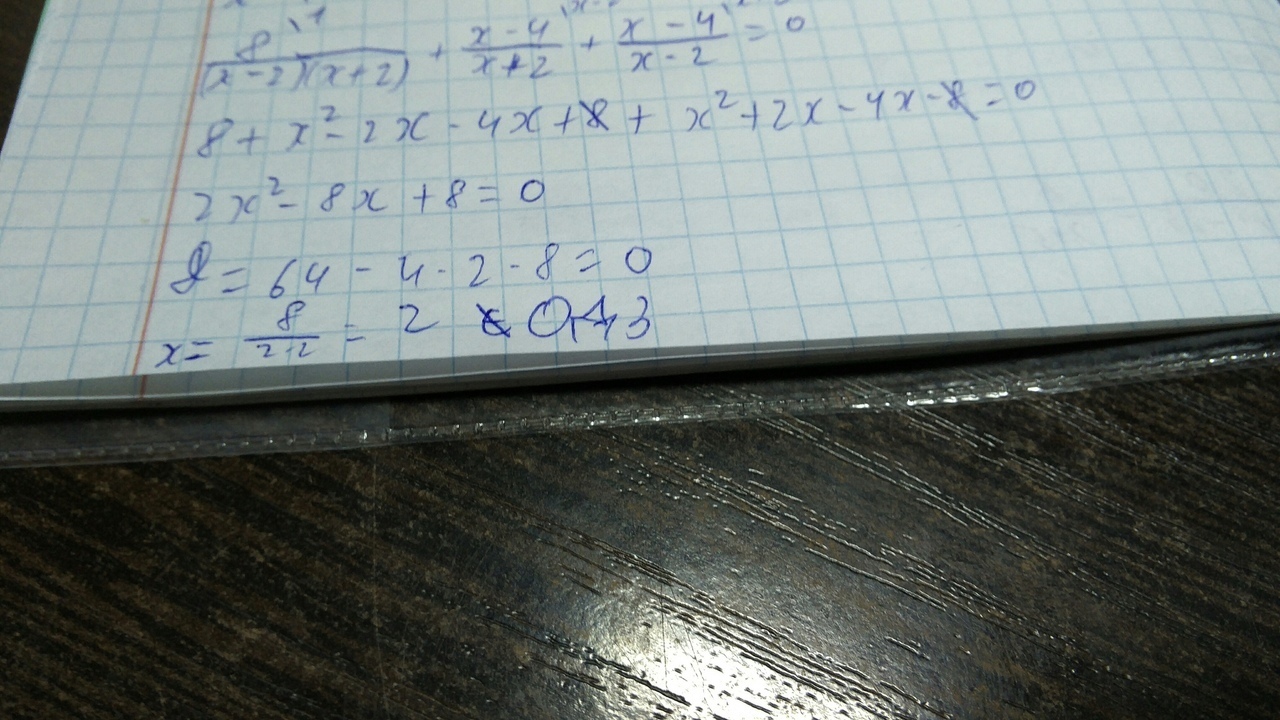 8/((x-2)(x+2)) + (x-4)/(x+2) + (x-4)/(x-2) = 0
8 + x² - 2x - 4x + 8 + x² + 2x - 4x - 8 = 0
2x² - 8x + 8 = 0
D = 64 - 4·2·8 = 0
x = 8/(2·2) = 2